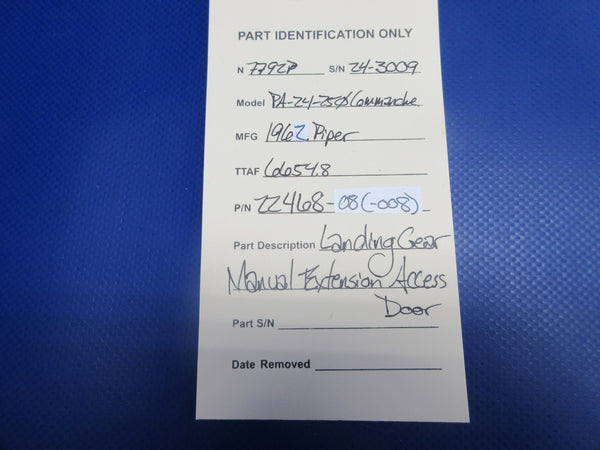 PART IDENTIFICATION ONLY
N 7792P S/N 24-3009
Model PA-24-250 Commanche
MFG 1962 Piper
TTAF 6654.8
P/N 22468-08(-008)
Part Description Landing Gear
Manual Extension Access
Door
Part S/N
Date Removed